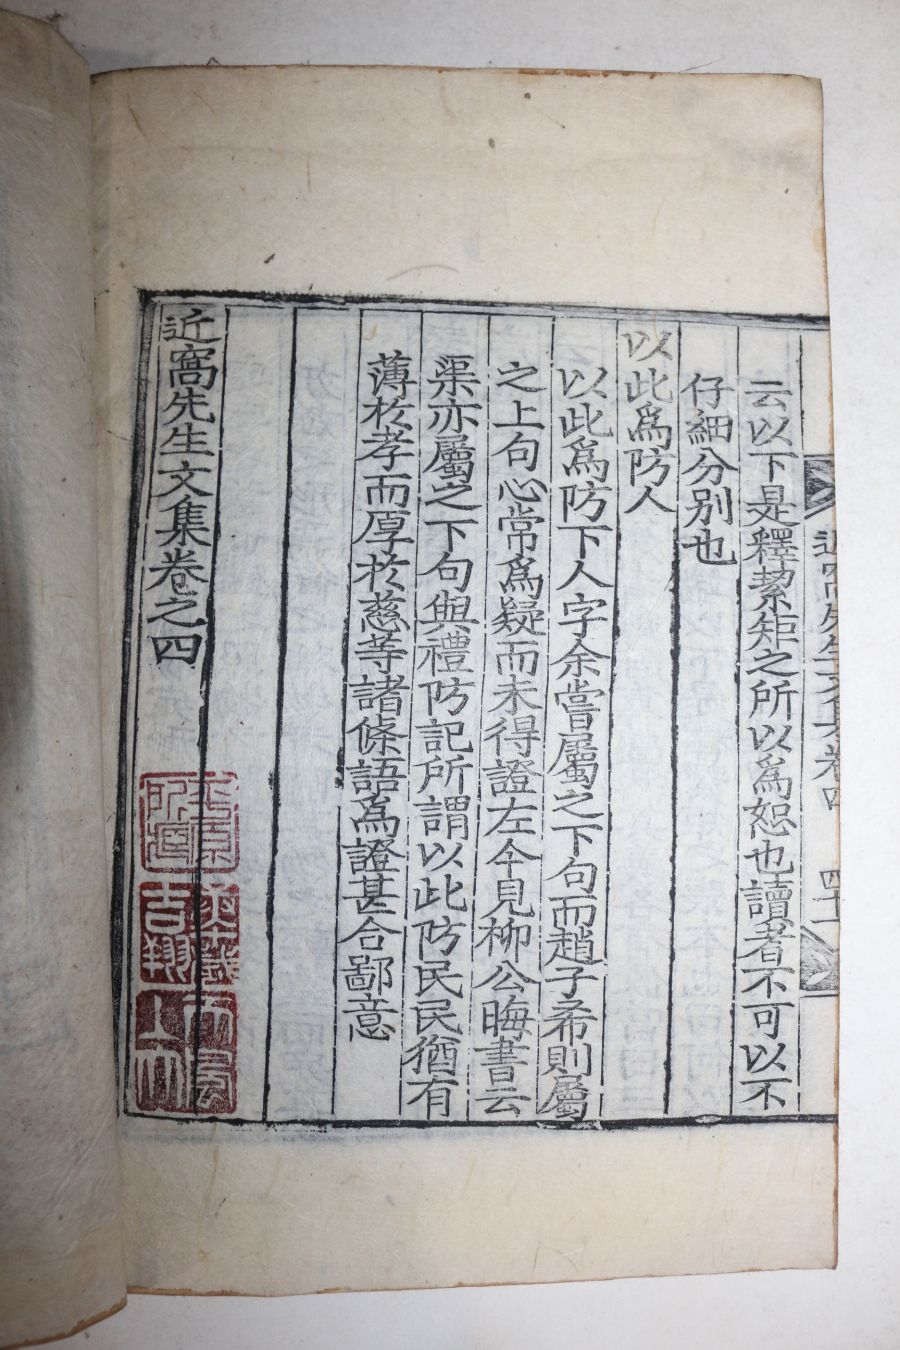 云以下是釋絜矩之所以爲恕也讀者不可以不
仔細分别也
以此爲防人
以此爲防下人字余嘗屬之下句而趙子希則屬
之上句心常爲疑而未得證左今見柳公晦書云
渠亦屬之下句與禮防記所謂以此防民民猶有
薄於孝而厚於慈等諸條語爲證甚合鄙意
近窩先生文集卷之四